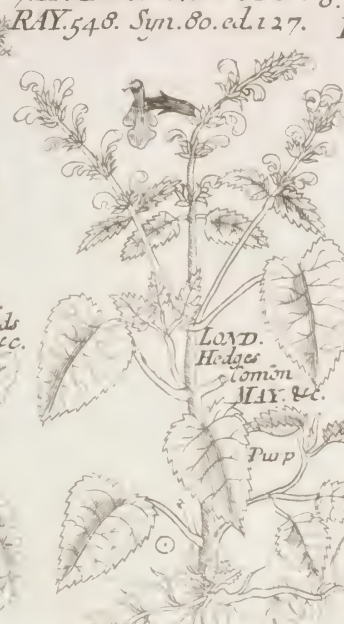 RAY.548. Syn.80.ed.127.
LOND.
Hedges
Comōn
MAY. &c.
Purp
ds
&c.